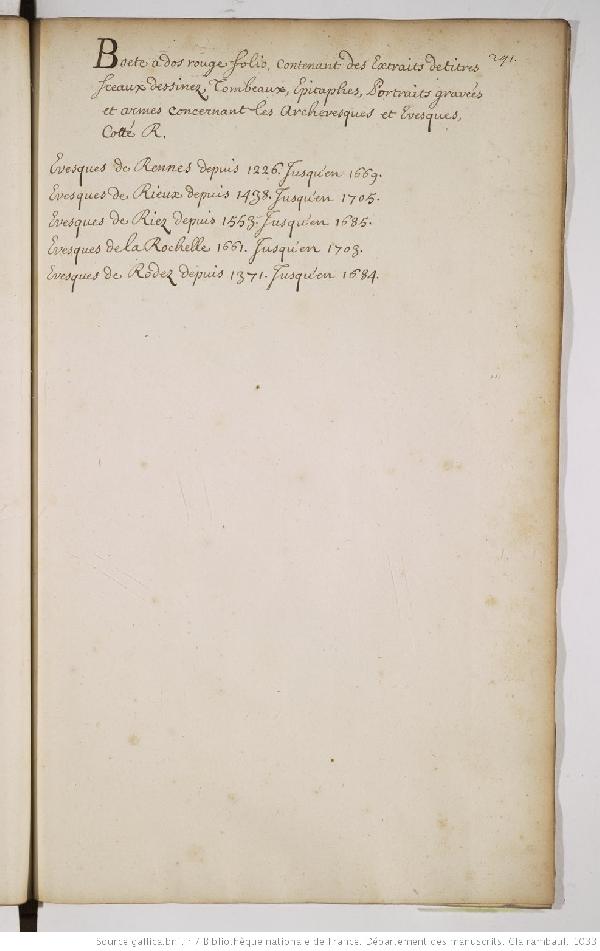 241.
Boete a dos rouge folio, contenant des Extraits de titres
sceaux dessinez, Tombeaux, Epitaphes, Portraits gravées
et armes concernant les Archevesques et Evesques,
Cotté R.
Evesques de Rennes depuis 1226. Jusqu'en 1669.
Evesques de Rieux depuis 1438. Jusqu'en 1705.
Evesques de Riez depuis 1553. Jusqu'en 1685.
Evesques de la Rochelle 1661. Jusqu'en 1703.
Evesques de Rodez depuis 1371. Jusqu'en 1684.
Source gallica.bnf.fr / Bibliothèque nationale de France. Département des manuscrits. Clairambault 1033